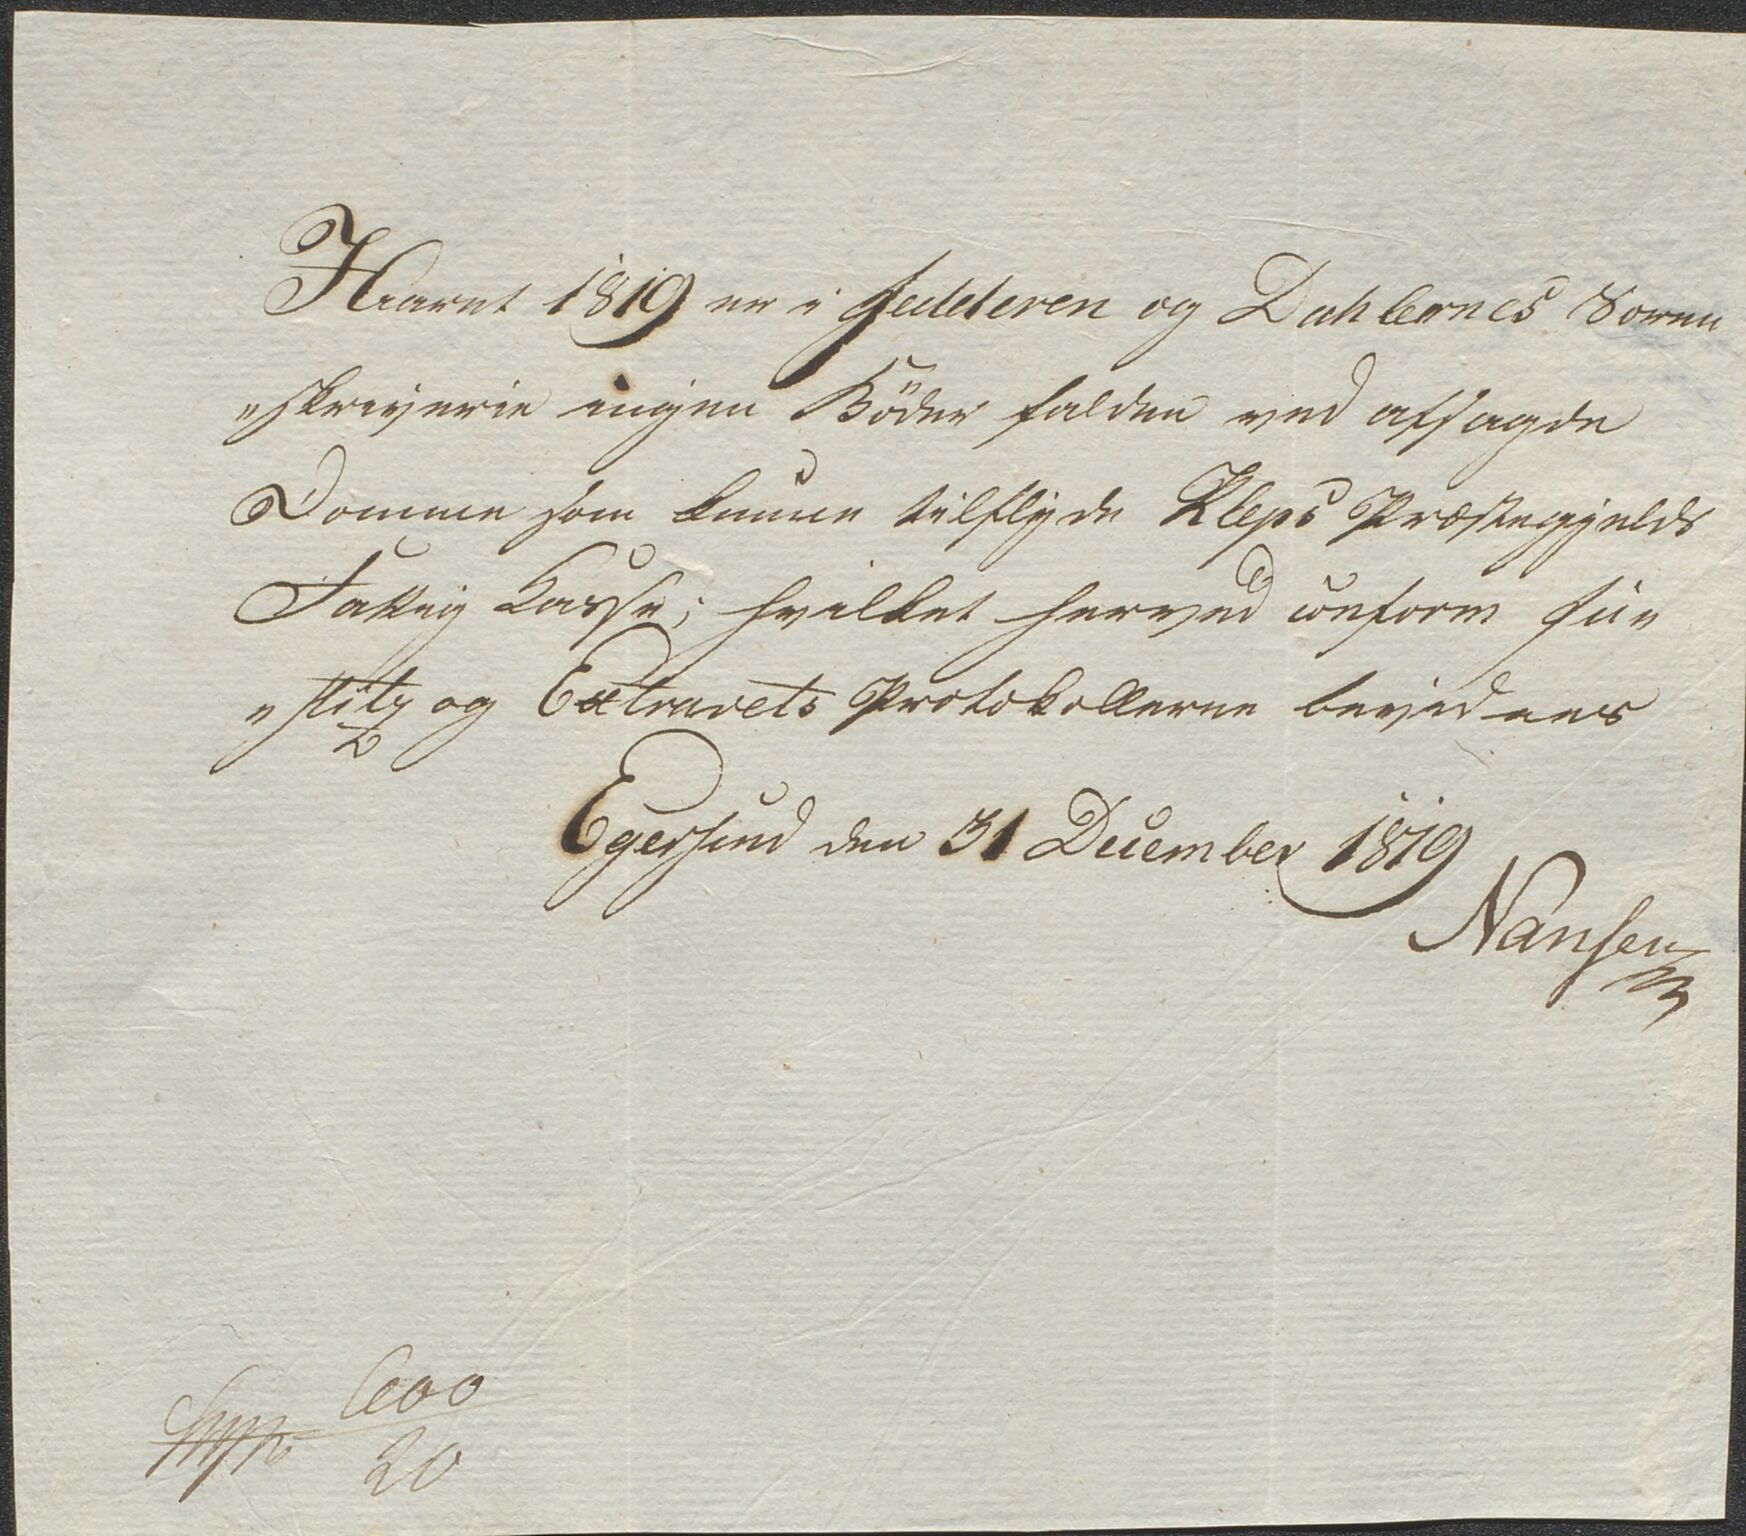 I Aaret 1819 er i Jedderen og Dahlernes Soren
„skriverie ingen Böder falden ved afsagde
Domme som kunne tilflyde Kleps Præstegjelds
Fattig Casse; hvilket herved conform Ju„
„stitz og Extrarets Protokollerne bevidnes
Egersund den 31 December 1819
Nansen
20